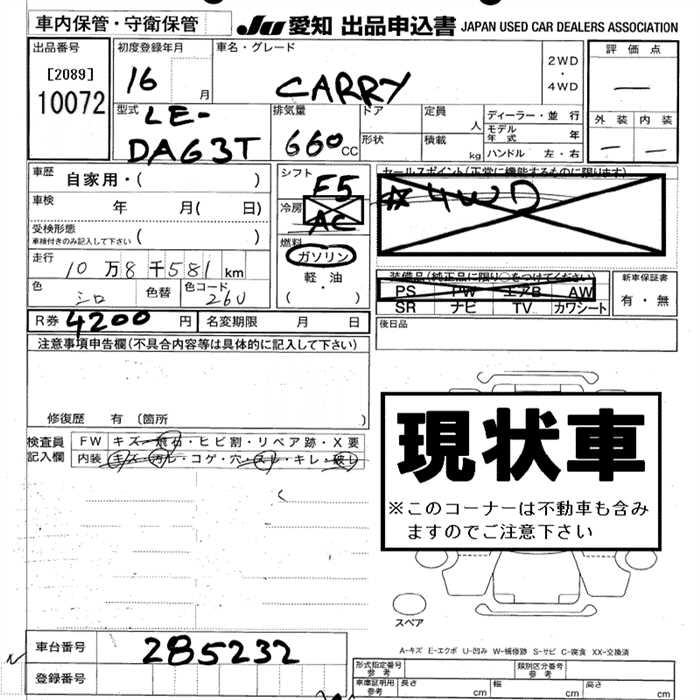 車内保管・守衛保管
JU 愛知 出品申込書 JAPAN USED CAR DEALERS ASSOCIATION
出品番号
[2089]
10072
初度登録年月
16 月
車名・グレード
CARRY
2WD
・
4WD
評価点
—
外装 内装
— —
型式
LE-
DA63T
排気量
660 CC
ドア
形状
定員 人
積載 kg
ディーラー・並行
モデル年式 年
ハンドル 左・右
車歴 自家用・( )
車検 年 月( 日)
受検形態
車検付きのみ記入して下さい ( )
走行
10万8千581km
色 シロ 色替 色コード 26U
シフト
F5
冷房
AC
燃料
ガソリン
軽・油
( ・ )
セールスポイント(正常に機能するものに限ります)
4WD
装備品(純正品に限り○をつけてください)
PS PW エアB AW
SR ナビ TV カワシート
新車保証書
有・無
R券 4200円 名変期限 月 日
後日品
注意事項申告欄(不具合内容等は具体的に記入して下さい)
修復歴 有 〔箇所 〕
検査員記入欄
FW キズ・飛石・ヒビ割・リペア跡・X要
内装 キズ・汚レ・コゲ・穴・スレ・キレ・破レ
現状車
※このコーナーは不動車も含み
ますのでご注意下さい
スペア
A-キズ E-エクボ U-凹み W-補修跡 S-サビ C-腐食 XX-交換済
車台番号 285232
登録番号
形式指定番号 参考
類別区分番号 参考
車庫証明用 参考 長さ cm 幅 cm 高さ cm